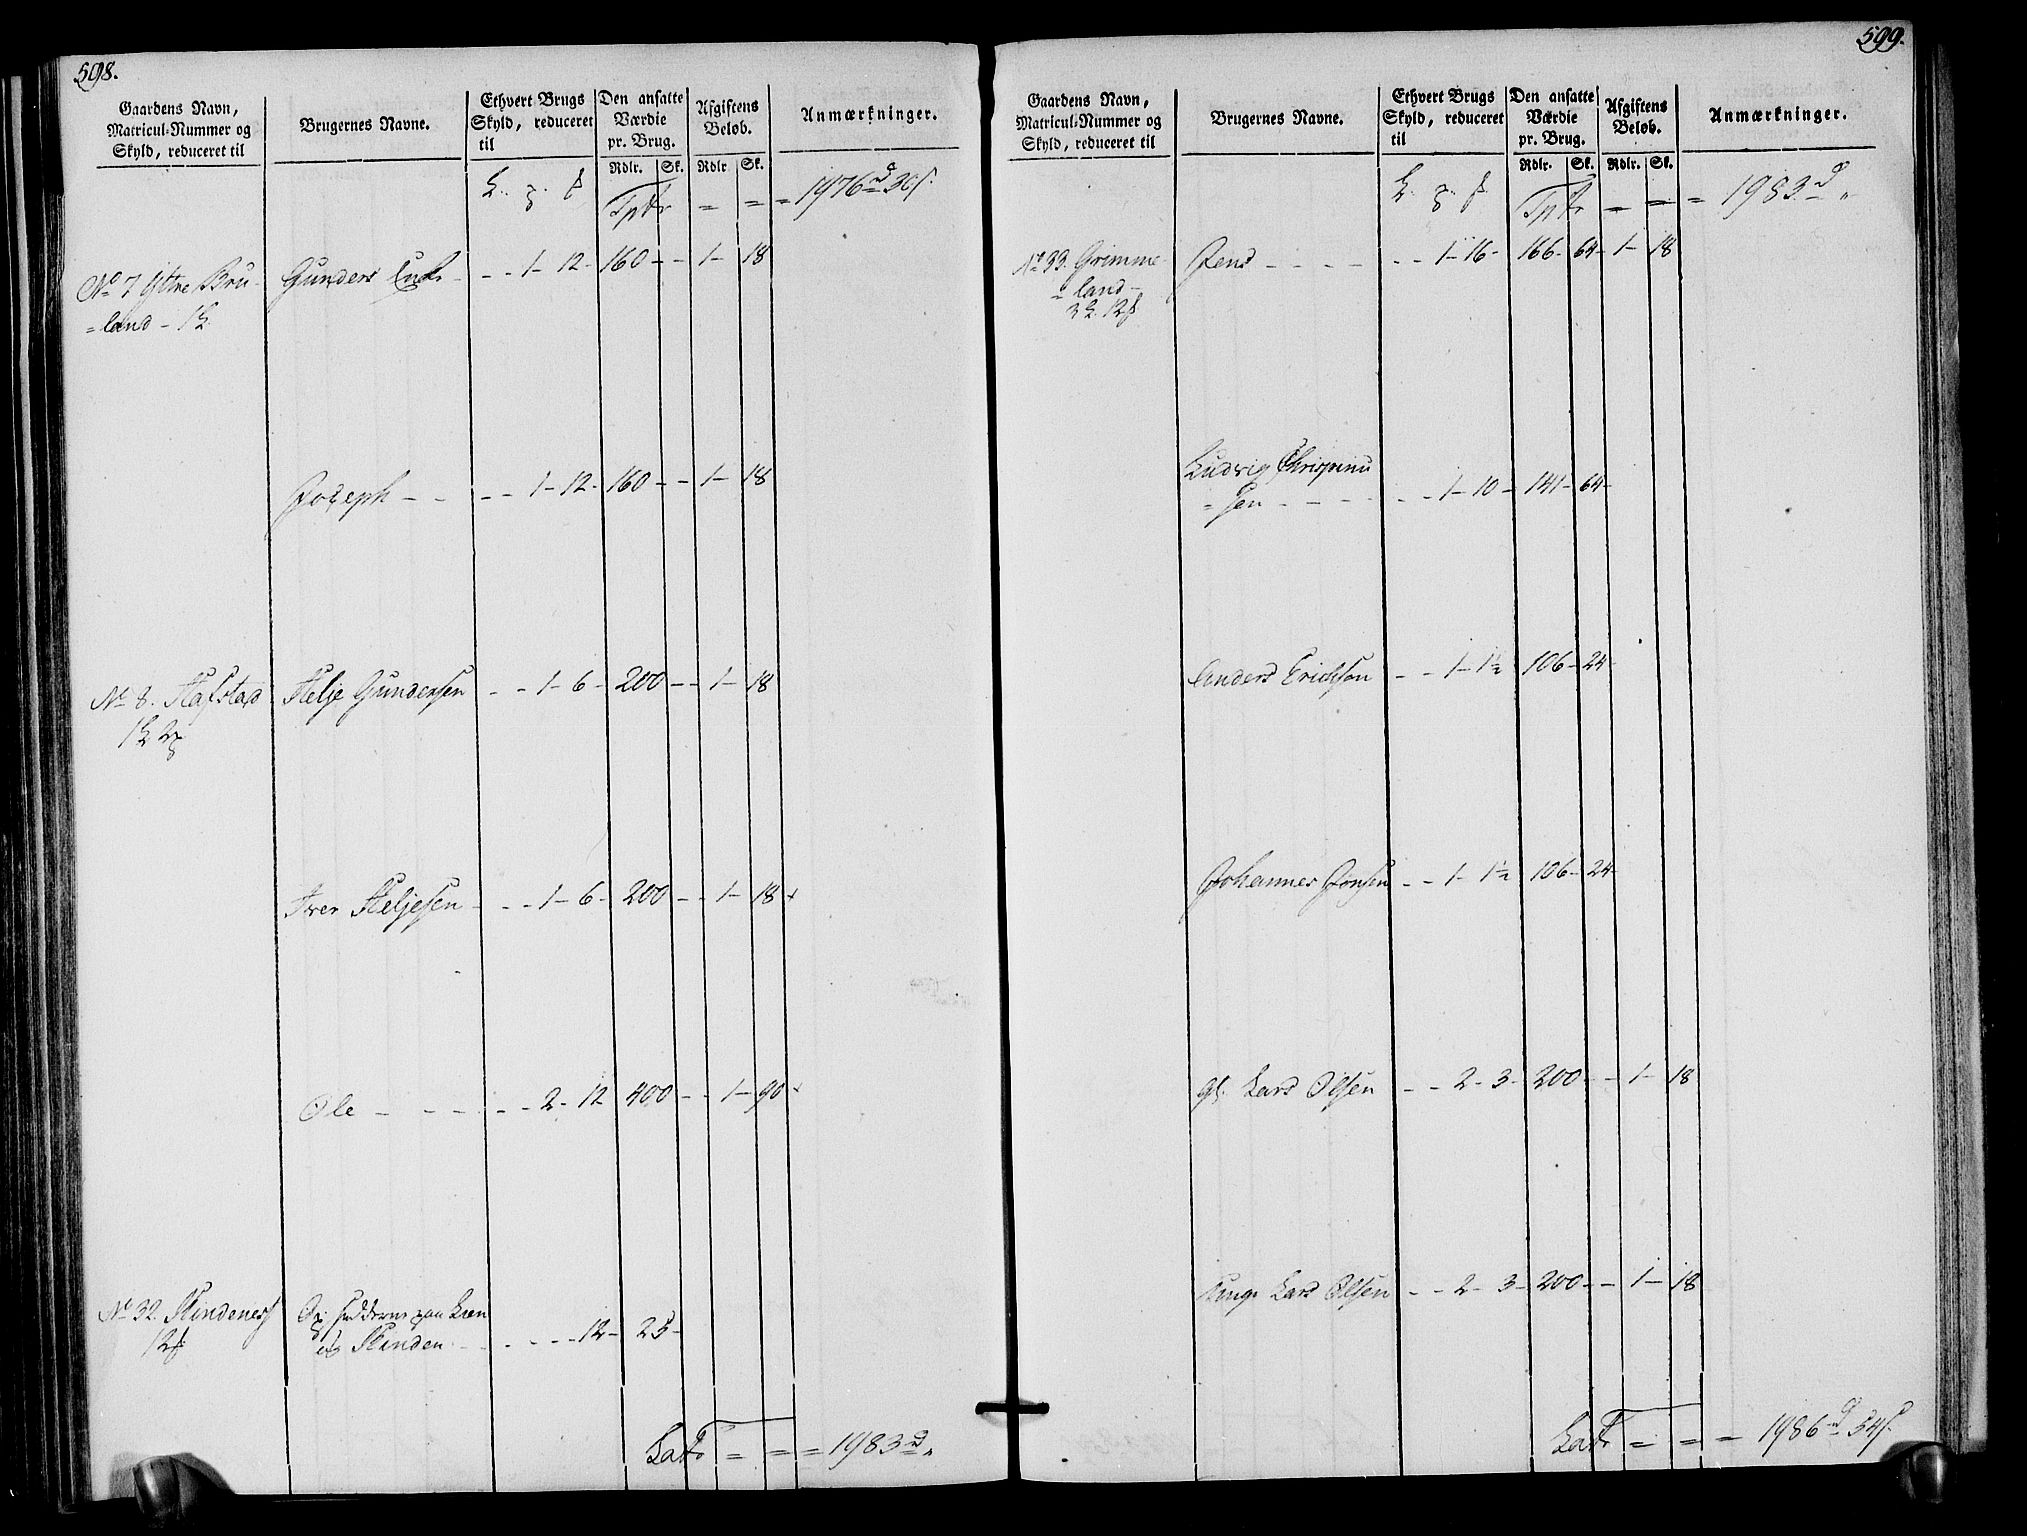 598.
Gaardens Navn, Matricul-Nummer og Skyld, reduceret til
Brugernes Navne.
Ethvert Brugs Skyld, reduceret til
Den ansatte Værdie pr. Brug.
Afgiftens Beløb.
Anmærkninger.
Rdlr. Sk. Rdlr. Sk.
Tptr = = = 1976 d 30 s.
No 7 Ytre Bru- Gunders - - 1 - 12 - 160 - - 1 - 18
=land - 1
Joseph - - - - 1 - 12 - 160 - - 1 - 18
No 8. Hafstad Helje Gundersen - - 1 - 6 - 200 - - 1 - 18
Iver Heljesen - - - 1 - 6 - 200 - - 1 - 18 +
Ole - - - - - 2 - 12 400 - - 1 - 90 +
No 32. Skindenes
Op sidderne paa Lien
og Skinden - - - - 12 - 25 -
Lat = = = 1983 d "
599.
Gaardens Navn, Matricul-Nummer og Skyld, reduceret til
Brugernes Navne.
Ethvert Brugs Skyld, reduceret til
Den ansatte Værdie pr. Brug.
Afgiftens Beløb.
Anmærkninger.
Rdlr. Sk. Rdlr. Sk.
Tptr = = = 1983 d "
No 33. Grimme- Jens - - - - - - 1 - 16 - 166 - 64 - 1 - 18
=land -
Ludvig Chrispinu
=sen - - - - - 1 - 10 - 141 - 64 -
Anders Erichsen - - 1 - 1½ 106 - 24 -
Johannes Jonsen - - 1 - 1½ 106 - 24 -
gl. Lars Olsen - - 2 - 3 - 200 - - 1 - 18
unge Lars Olsen - - 2 - 3 - 200 - - 1 - 18
Lat = = = 1986 d 54 s.